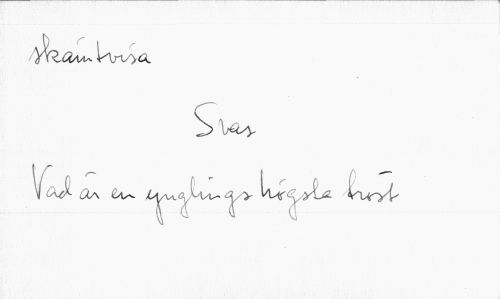 skämtvisa
Svas
Vad är en ynglings högsta tröst